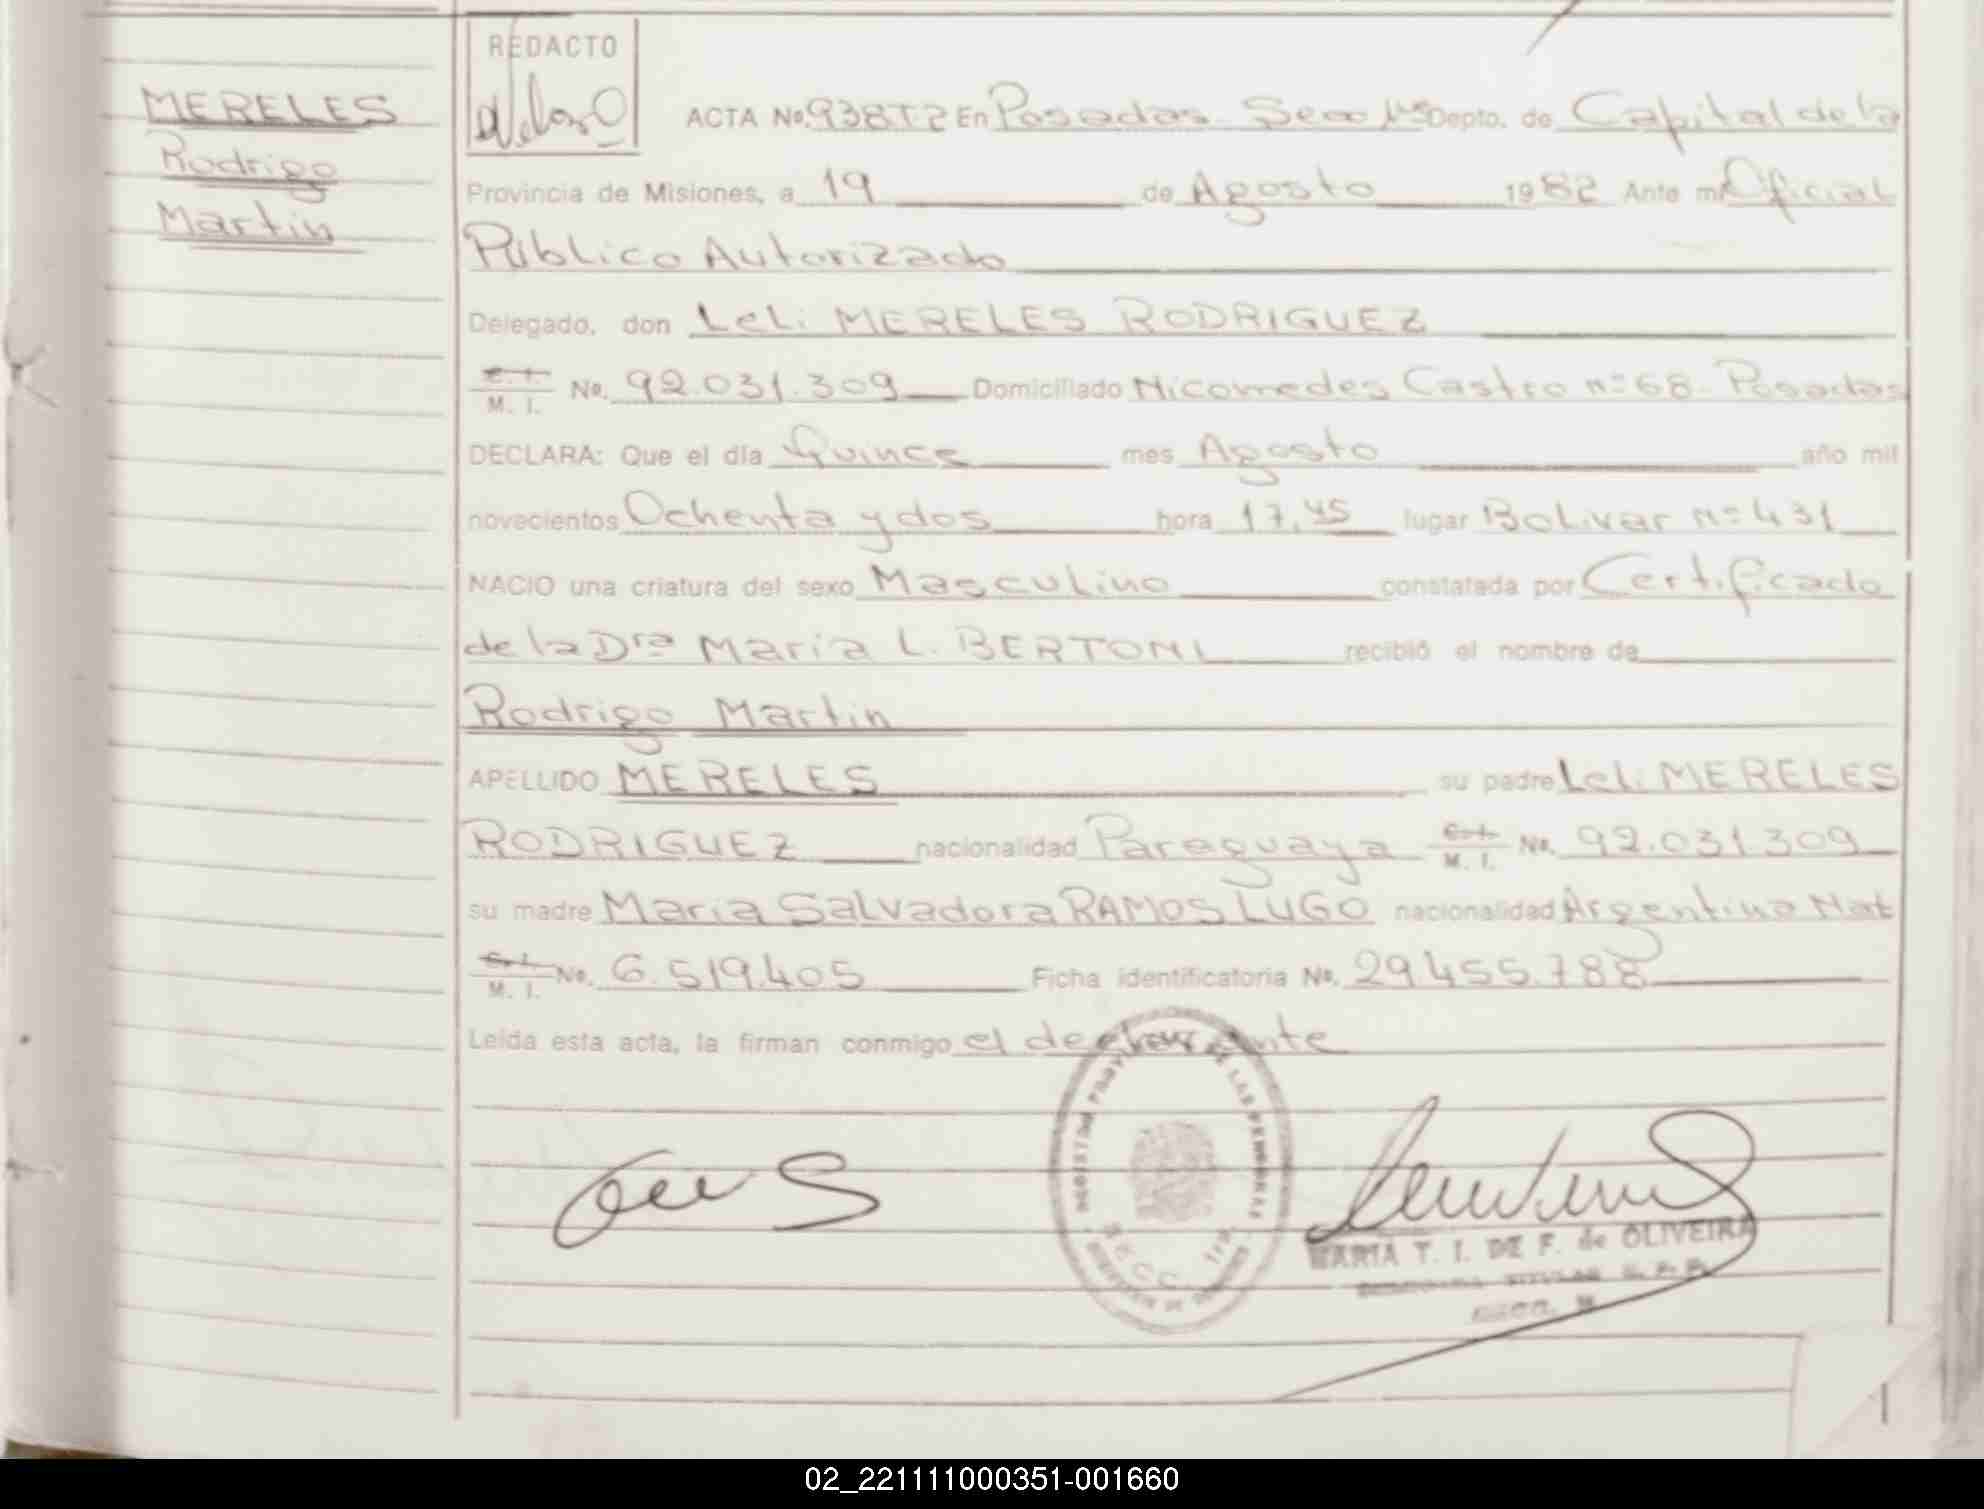 MERELES
Rodrigo
Martin
REDACTO
ACTA No. 938T2 En Posadas - Secc Depto. de Capital de la
Provincia de Misiones, a 19 de Agosto 1982 Ante mí Oficial
Público Autorizado
Delegado, don Leli MERELES RODRIGUEZ
C. I. / M. I. No. 92.031.309 Domiciliado Nicomedes Castro nº 68 - Posadas
DECLARA: Que el día Quince mes Agosto año mil
novecientos Ochenta y dos hora 17,45 lugar Bolivar nº 431
NACIO una criatura del sexo Masculino constatada por Certificado
de la Dra Maria L. BERTONI recibió el nombre de
Rodrigo Martin
APELLIDO MERELES su padre Leli MERELES
RODRIGUEZ nacionalidad Paraguaya C. I. / M. I. No. 92.031.309
su madre Maria Salvadora RAMOS LUGO nacionalidad Argentina Nat
C. I. / M. I. No. 6.519.405 Ficha identificatoria No. 29.455.788
Leída esta acta, la firman conmigo el declarante
REGISTRO PROVINCIAL DE LAS PERSONAS
MARIA T. I. DE F. de OLIVEIRA
02_221111000351-001660